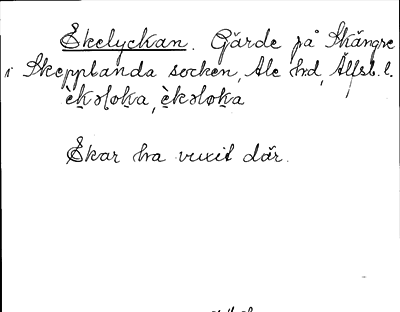 Ekelyckan. Gärde på Skångre
i Skepplanda socken, Ale hd, Älfsb. l.
èkəloka, èkəloka

Ekar ha vuxit där.